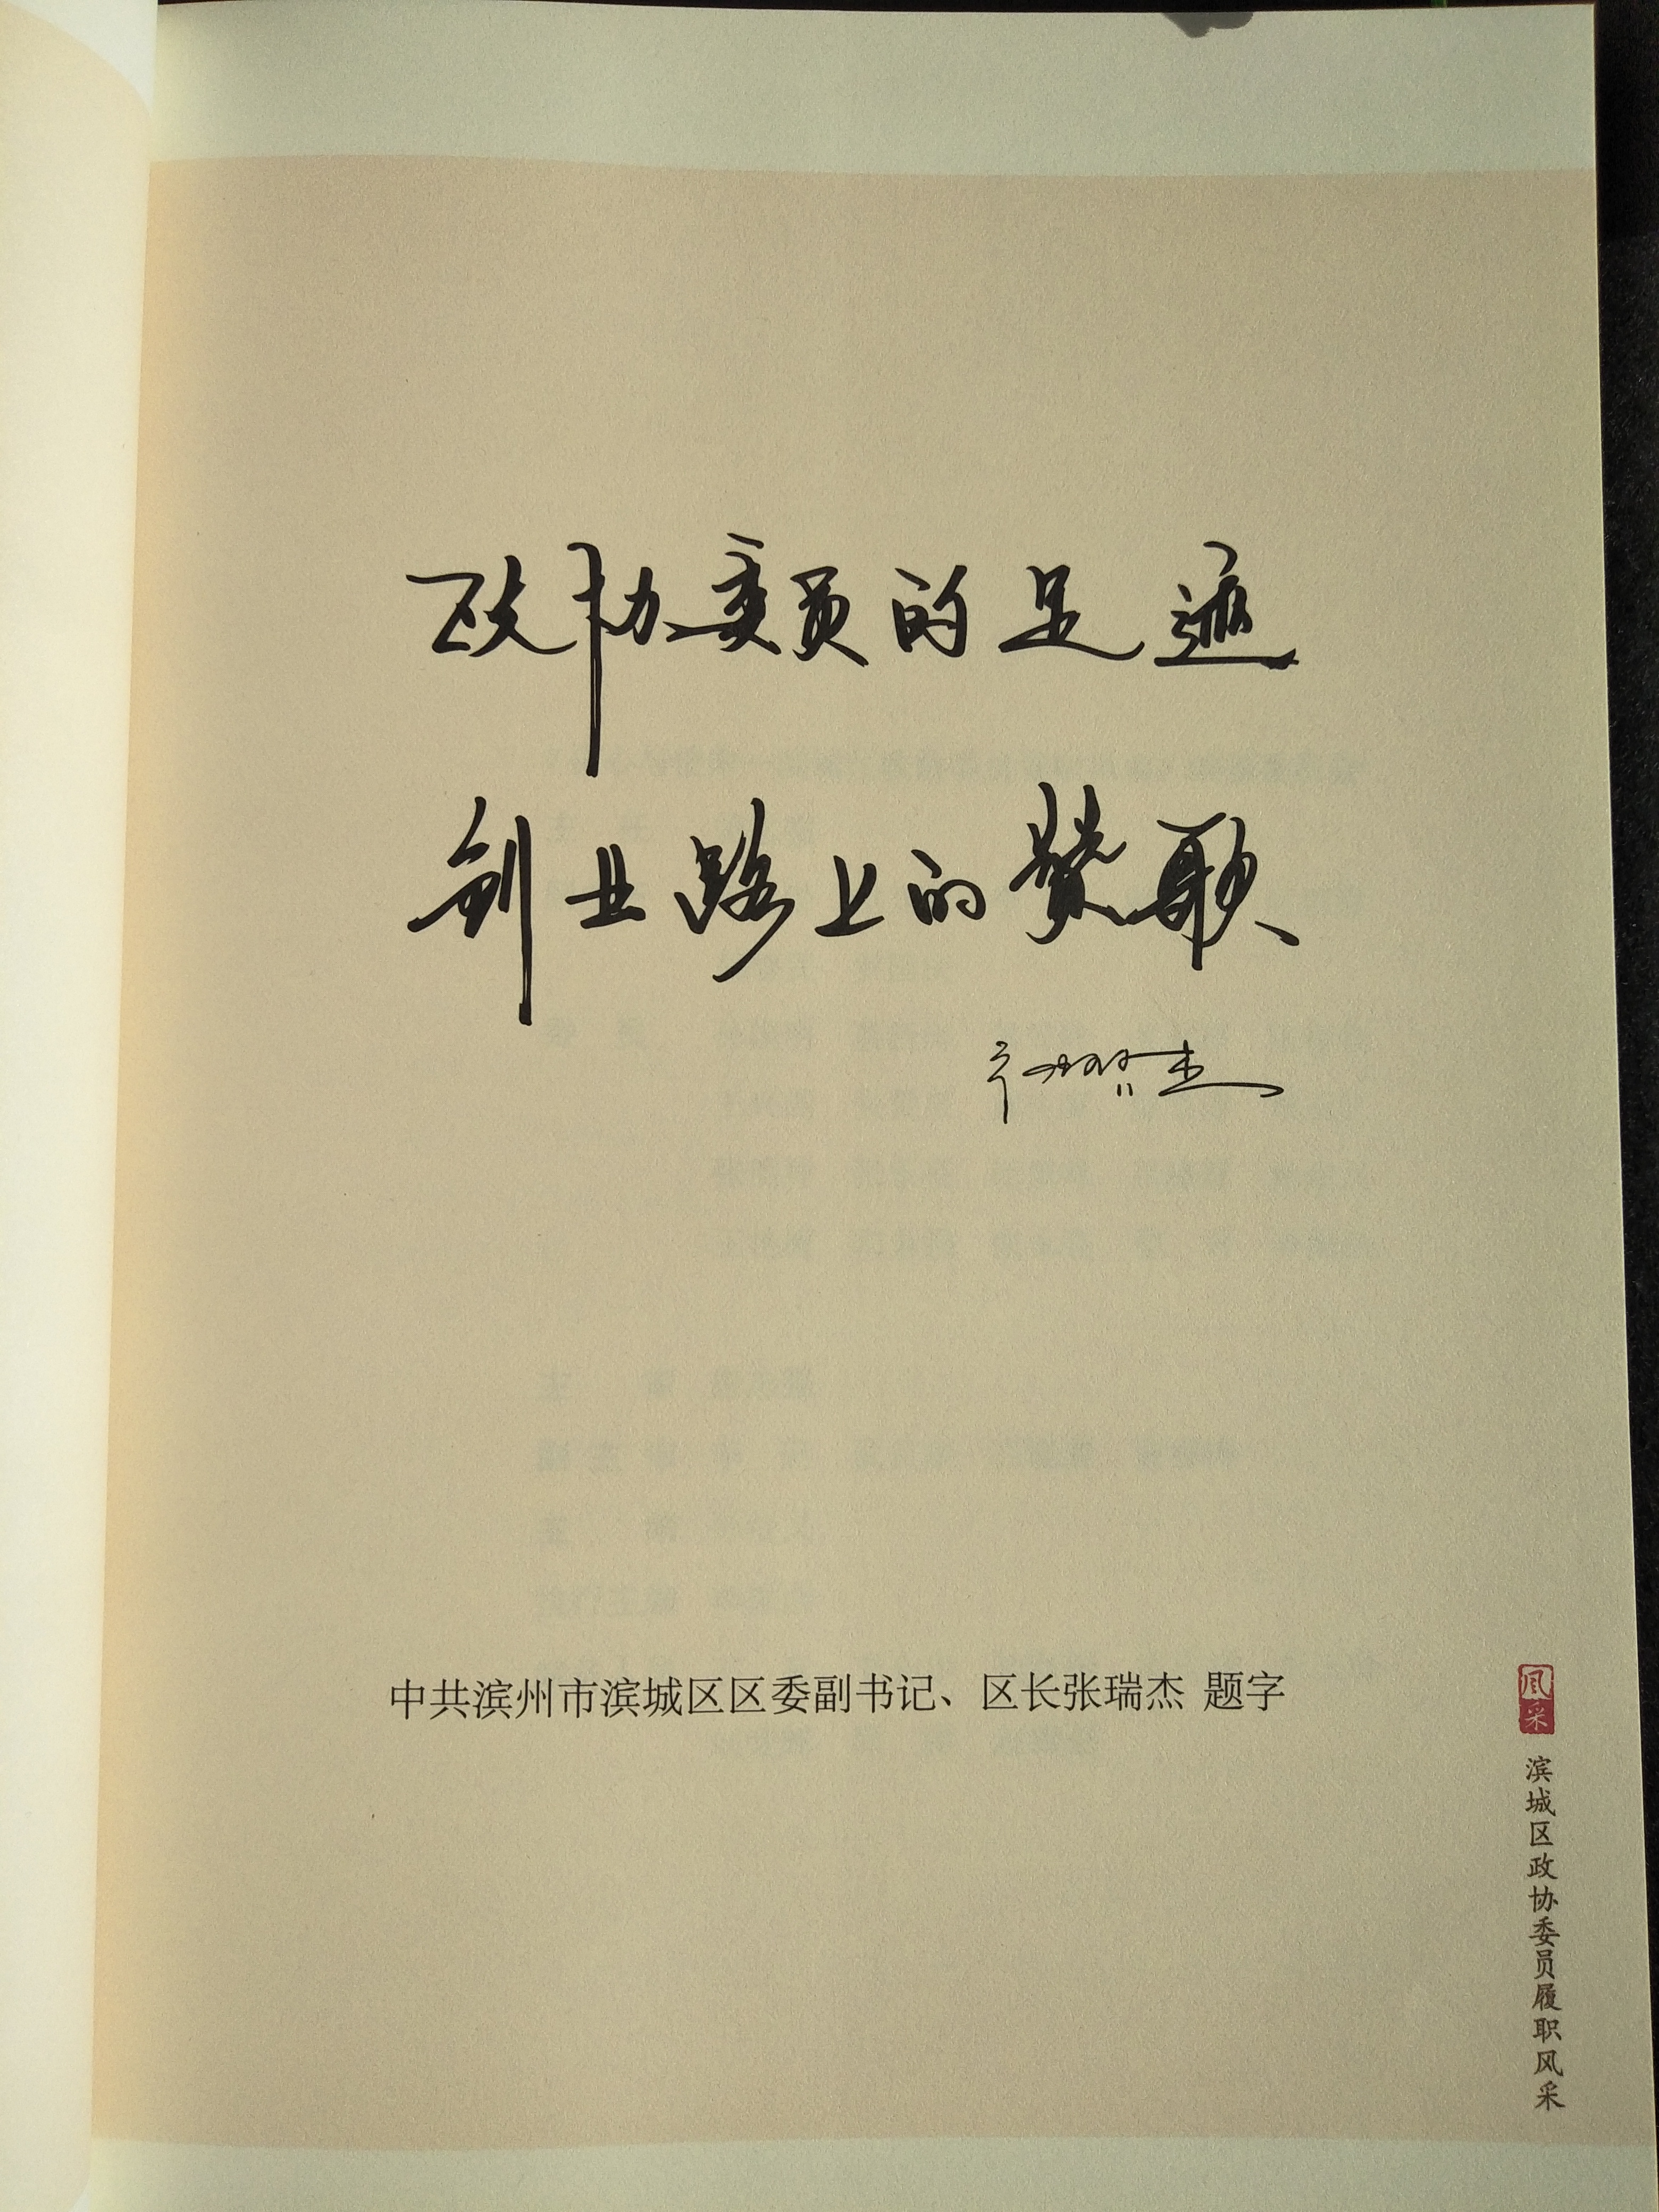 政协委员的足迹
创业路上的赞歌
中共滨州市滨城区区委副书记、区长张瑞杰 题字
风采
滨城区政协委员履职风采